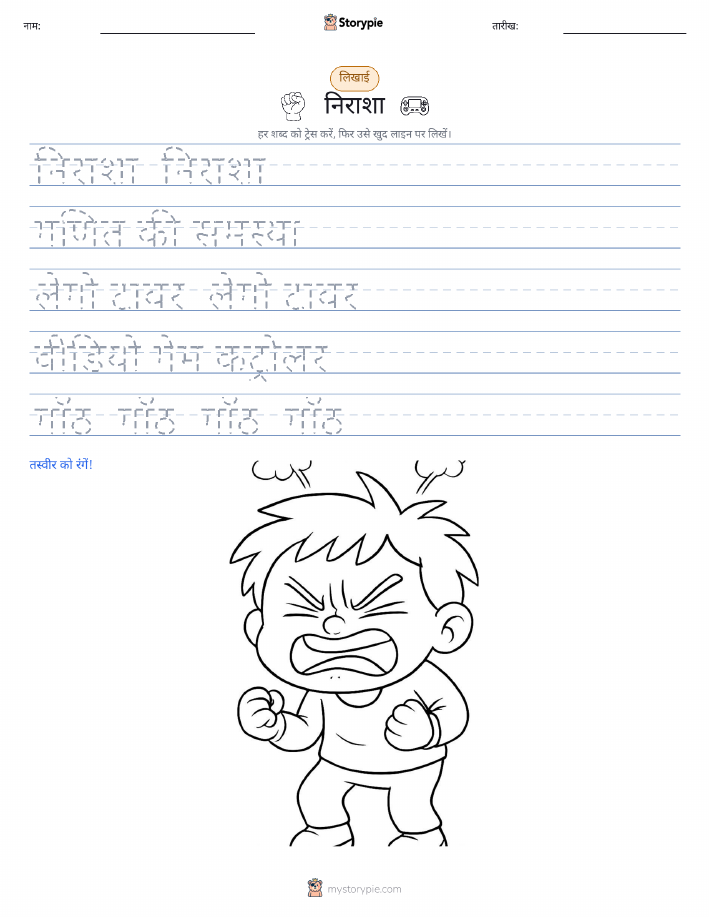 नाम: Storypie तारीख:
लिखाई
निराशा
हर शब्द को ट्रेस करें, फिर उसे खुद लाइन पर लिखें।
निराशा निराशा
गणित की समस्या
लेगो टावर लेगो टावर
वीडियो गेम कंट्रोलर
गाँठ गाँठ गाँठ गाँठ
तस्वीर को रंगें!
mystorypie.com